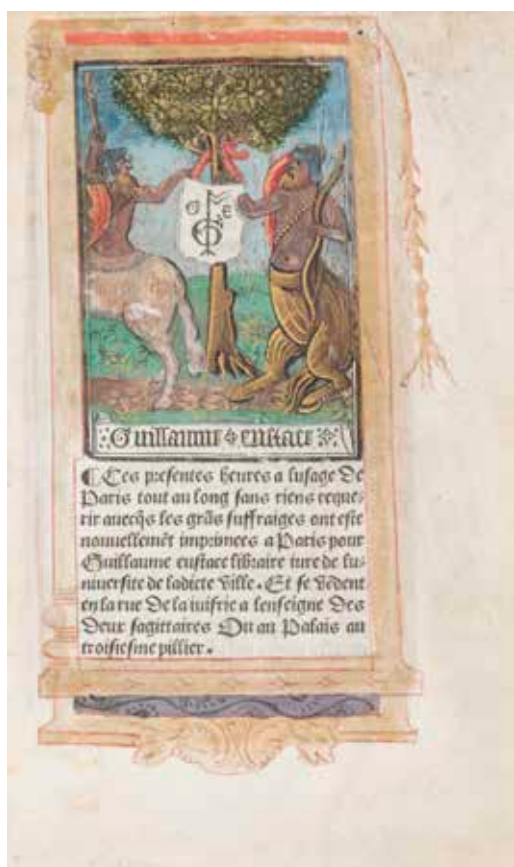 G E
Guillaume eustace
¶ Ces presentes heures a lusage De
Paris tout au long sans riens reque-
rir auecq̃s les grãs suffraiges ont este
nouuellemẽt imprimees a Paris pour
Guillaume eustace libraire iure de lu-
niuersite de ladicte Ville. Et se Vẽdent
en la rue De la iuifrie a lenseigne Des
Deux sagittaires Ou au Palais au
troisiesme pillier.